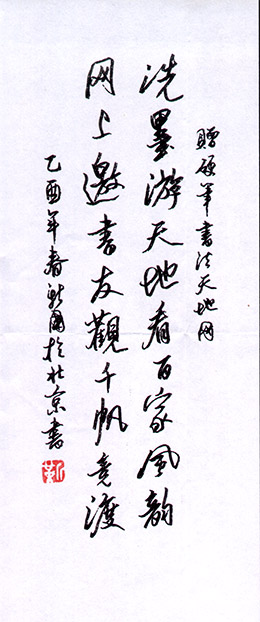 赠硬笔书法天地网
洗墨游天地看百家风韵
网上邀书友觀千帆竞渡
乙酉年春新国於北京書
靳